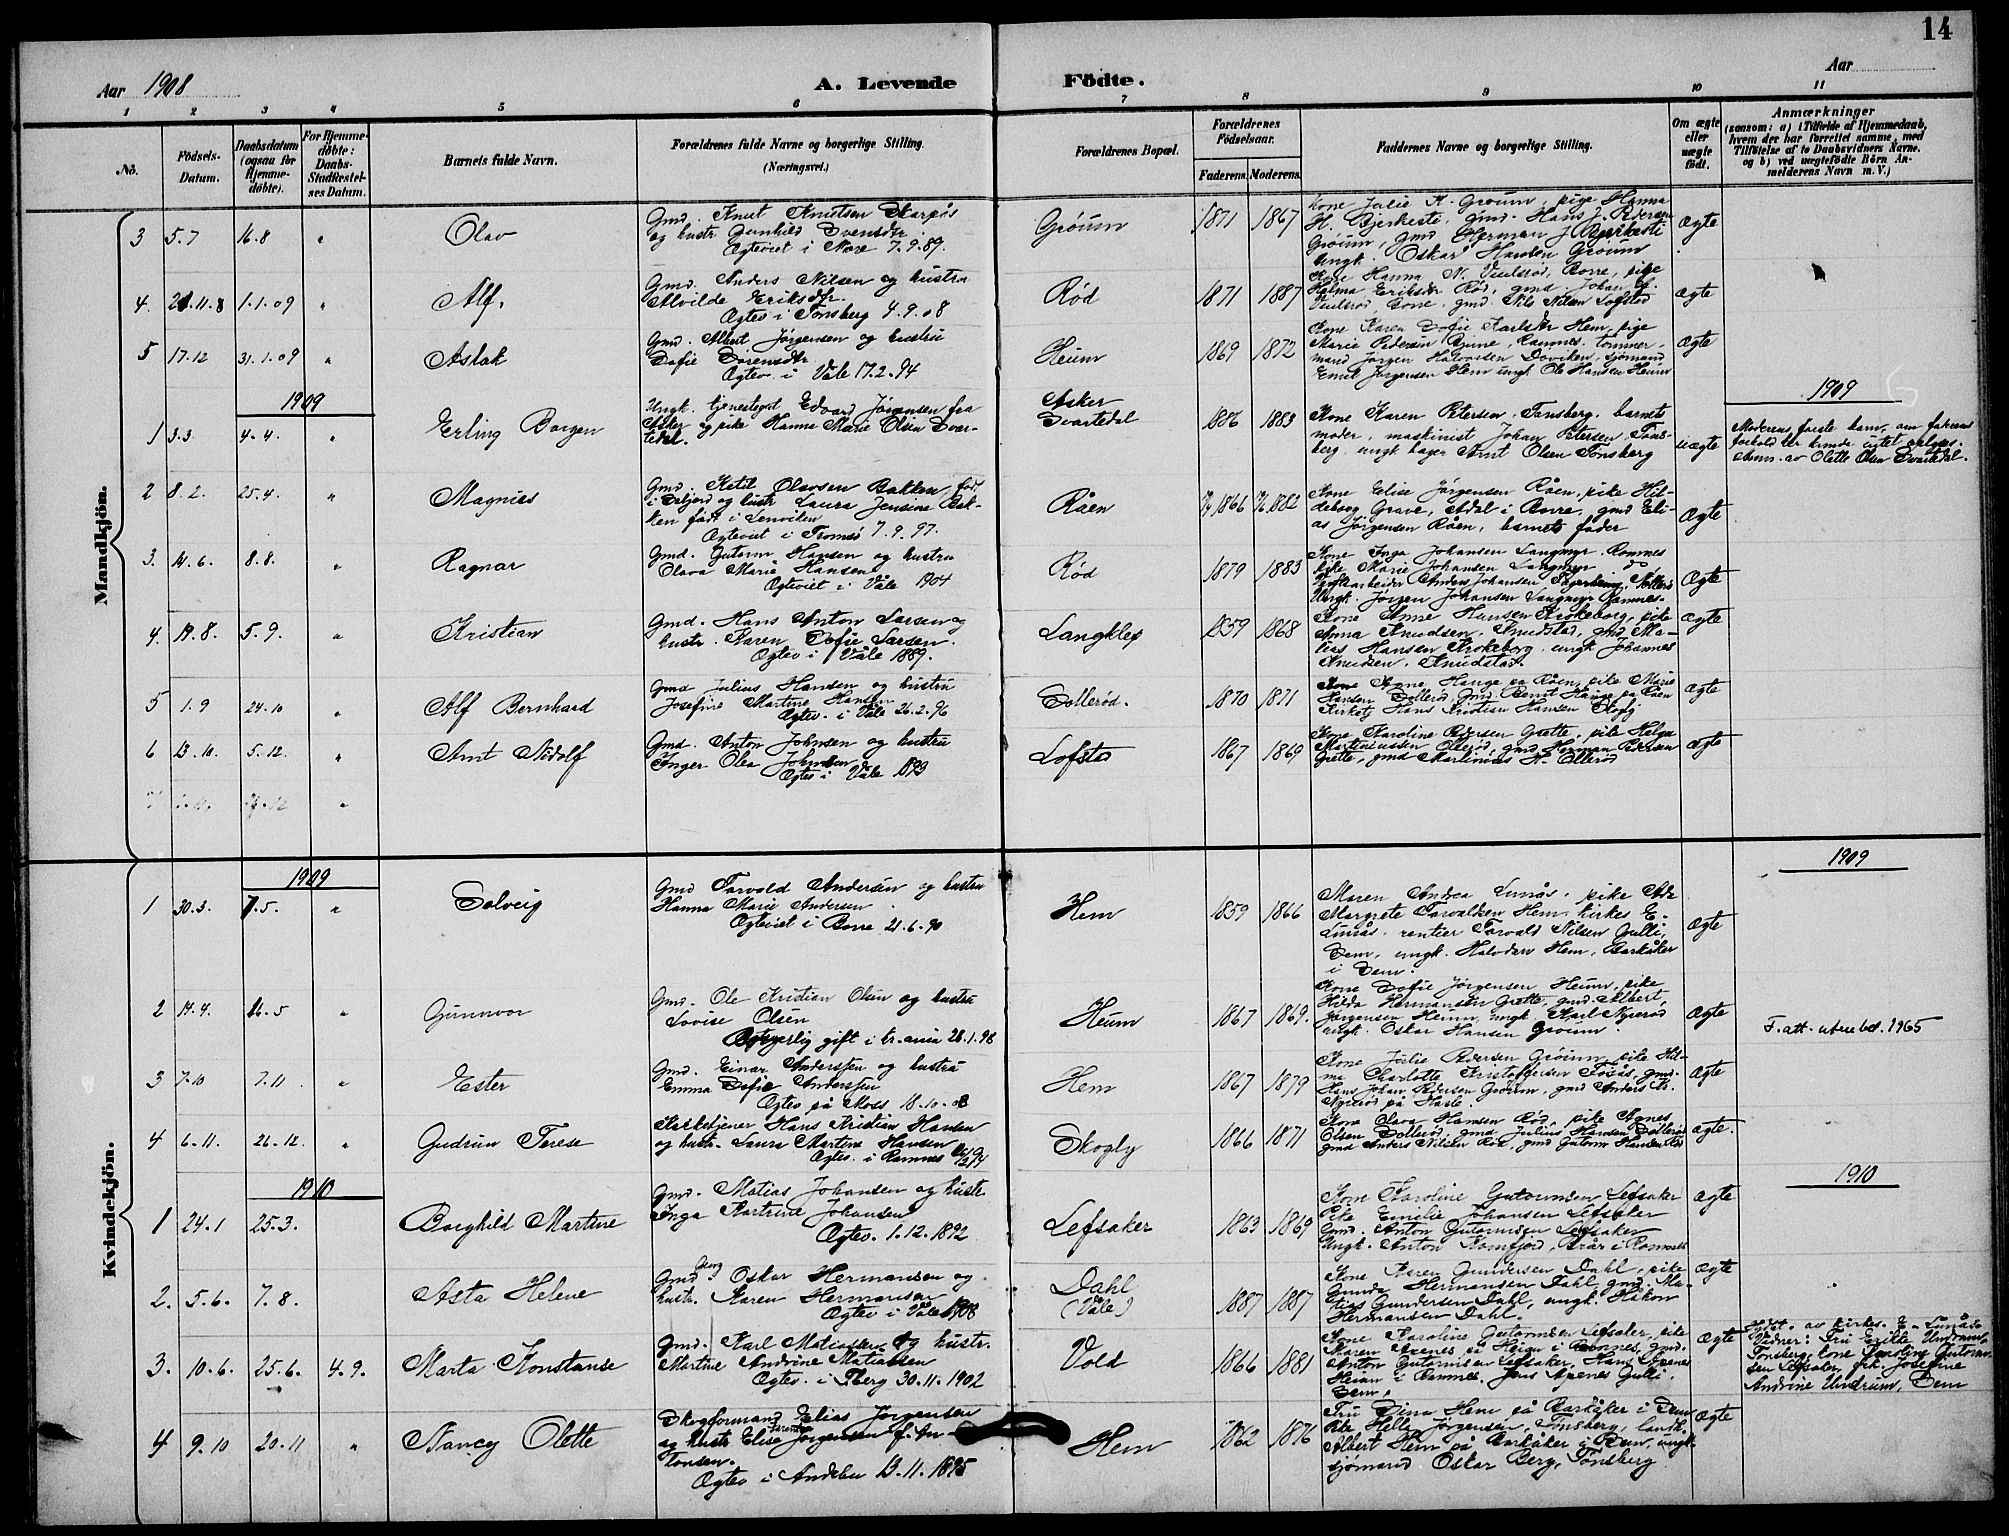 14
Aar 1908
A. Levende Födte.
Aar
1 2 3 4 5 6 7 8 9 10 11
No.
Födsels-Datum.
Daabsdatum (ogsaa for Hjemme-døbte).
For Hjemme-døbte: Daabs-Stadfæstel-ses Datum.
Barnets fulde Navn.
Forældrenes fulde Navne og borgerlige Stilling. (Næringsvei.)
Forældrenes Bopæl.
Forældrenes Födselsaar.
Faderens. Moderens.
Faddernes Navne og borgerlige Stilling.
Om ægte eller uægte født.
Anmærkninger
(saasom: a) i Tilfælde af Hjemmedaab, hvem der har forrettet samme, med Tilföielse af to Daabsvidners Navne, og b) ved uægtefödte Börn An-melderens Navn m. V.)
Mandkjön.
3 5.7 16.8 " Olav
Gmd. Knut Knutsen
og hustr. Gunhild Svensdtr.
Ægteviet i Nore 7.9.89.
Grøum 1871 1867
Kone Julie K. Grøum, pige Hanna
H. Bjerkesti, gmd. Hans J. Pedersen
Grøum, gmd Herman J Bjerkesti
Ungk. Oskar Hansen Grøum
Ægte
4. 21.11.8 1.1.09 " Alf.
Gmd. Anders Nilsen og hustru
Alvilde Eriksdtr.
Ægtev i Tønsberg 4.9.08
Rød 1871 1887
Kone Hanna N. Borre, pige
Halma Eriksen Rød, gmd. Johan
Borre, gmd Nils Nilsen Lofstad
Ægte
5 17.12 31.1.09 " Aslak
Gmd. Albert Jørgensen og hustru
Sofie Sørensdtr
Ægtev. i Våle 17.2.94
Heum 1869 1872
Kone Karen Sofie Karlsdtr Hem, pige
Marie Pedersen Ramnes, tømmer-
mand Jørgen Halvorsen sjømand
Emil Jørgensen Hem ungk. Ole Hansen Heum
Ægte
1909
1909
1 3.3. 4.4. " Erling Borgen
Ungk. tjenestegut Edvard Jørgensen fra
Asker og pike Hanna Marie Olsen Svar-
tedal.
Asker
Svartedal
1886 1883
Kone Karen Petersen, Tønsberg, barnets
moder, maskinist Johan Petersen Tøns-
berg, ungk bager Arnt Olsen Tønsberg
uægte
Moderens første barn, om faderens
forhold her kunde intet oplyses.
Anm. av Olette Olsen Svartedal.
2 8.2. 25.4. " Magnus
Gmd. Ketil Olavsen Bakken, fød.
i Seljord og hustr Laura Jensine Bak-
ken født i Lenviken
Ægteviet i Tromsø 7.9.97.
Råen 1866 1882
Kone Elise Jørgensen Råen, pike Hil-
deborg Grave, Adal i Borre, gmd Eli-
as Jørgensen Råen, barnets fader
Ægte
3. 14.6. 8.8. " Ragnar
Gmd. Gutorm Hansen og hustru
Olava Marie Hansen
Ægteviet i Våle 1904
Rød 1879 1883
Kone Inga Johansen Langmyr Ramnes
pike Marie Johansen Langmyr do
Anders Johansen
Ungk. Jørgen Johansen Langmyr Ramnes.
Ægte
4. 19.8. 5.9. " Kristian
Gmd. Hans Anton Larsen og
hustr. Karen Sofie Larsen.
Ægtev i Våle 1889.
Langklep 1859 1868
Kone Anne Hansen Krokeborg, pike
Anna Knudsen, Knudstad, gmd Ma-
tias Hansen Krokeborg, ungk Johannes
Knudsen, Knudstad.
Ægte
5 1.9 24.10 " Alf Bernhard
Gmd Julius Hansen og hustru
Josefine Martine Hansen
Ægtev. i Våle 26.2.96
Sollerød. 1870 1871
Kone Hauge på Råen, pike Marie
Hansen Sollerød, Gmd Bernt Hauge på Råen
Kirketj Hans Kristian Hansen Skogby
Ægte
6 13.10. 5.12. " Arnt Nidolf
Gmd. Anton Johnsen og hustru
Inger Olea Johnsen
Ægtev i Våle 1893
Lofstad 1867 1869
Kone Karoline Pedersen Grette, pike Helga
Martiniussen Ollerød, gmd Herman Pedersen
Grette, gmd Martinius H. Ollerød
Ægte
Kvindekjön.
1909
1909
1 30.3. 7.5. " Solveig
Gmd Torvald Andersen og hustru
Hanna Marie Andersen
Ægteviet i Borre 21.6.90
Hem 1859 1866
Maren Andrea Lunås, pike Ada
Margrete Torvaldsen Hem, kirkes E.
Lunås, rentier Torvald Nilsen Gulli,
Sem, ungk. Halvdan Hem, Barkåker
i Sem.
Ægte
2 14.4. 16.5 " Gunnvor
Gmd. Ole Kristian Olsen og hustru
Lovise Olsen
Borgerlig gift i Kr.ania 28.1.98
Heum 1867 1869.
Kone Sofie Jørgensen Heum, pike
Hilda Hermansen Grette, gmd. Albert
Jørgensen Heum, ungk. Karl Nyerød
ungk. Oskar Hansen Grøum.
Ægte
F. att. utsendt 1965
3 7.10 7.11 " Ester
Gmd. Einar Anderssen og hustru
Emma Sofie Anderssen
Ægtev på Moss 18.10.08
Hem 1867 1879
Kone Julie Pedersen Grøum, pike Hil-
ma Charlotte Kristoffersen gmd.
Hans Johan Pedersen Grøum, gmd Anders Kr.
Nyerød på
Ægte
4 6.11. 26.12. " Gudrun Terese
Kirketjener Hans Kristian Hansen
og hustr. Laura Martine Hansen
Ægtev. i Ramnes
Skogby 1866 1871
Kone Olava Hansen Rød, pike Agnes
Olsen Sollerød, gmd Julius Hansen Sollerød
gmd Anders Nilsen Rød, gmd Gutorm Hansen Rød
ægte.
1910
1910
1 24.1 25.3. Borghild Martine
Gmd. Matias Johansen og hustr
Inga Kartrine Johansen
Ægtev. 1.12.1892
Lefsaker 1863 1869
Kone Karoline Gutormsen Lefsaker
Pike Emilie Johansen Lefsaker
Gmd. Anton Gutormsen Lefsaker
Ungk. Anton Ramnes
Ægte
2. 5.6. 7.8. Asta Helene
Gmd. Georg Oskar Hermansen og
hustr. Karen Hermansen
Ægtev i Våle 1908
Dahl
(Våle)
1887 1887
Kone Karen Gundersen Dahl, pike
Gunda Hermansen Dahl, gmd. Ma-
tias Gundersen Dahl, ungk. Håkon
Hermansen Dahl.
Ægte
3. 10.6. 25.6. 4.9. Marta Konstanse
Gmd. Karl Matiassen og hustr.
Martine Andrine Matiassen
Ægtev. i Tberg 30.11.1902
Vold 1866 1881
Kone Karoline Gutormsen Lefsaker, pike
Karen Apenes på Heian i Ramnes, gmd.
Anton Gutormsen Lefsaker, Hans Apenes
Heian i Ramnes, Jens Apenes Gulli,
Sem.
Ægte
Hjdt. av kirkes. E. Lunås
Vidner: Fru Erikke Undrum,
Tønsberg, kone Karoline Gutorm-
sen Lefsaker, pik. Josefine
Andrine Undrum, Sem
4 9.10 20.11 " Nancy Olette
Skogformand Elias Jørgensen
og hustr Elise Jørgensen f. An-
tonsen.
Ægtev i Andebu 13.11.1895
Hem 1862 1876
Fru Dina Hem på Barkåker i Sem
Pike Helle Jørgensen, Tønsberg, landh.
Albert Hem på Barkåker i Sem, ungk.
sjømand Oskar Berg, Tønsberg
Ægte